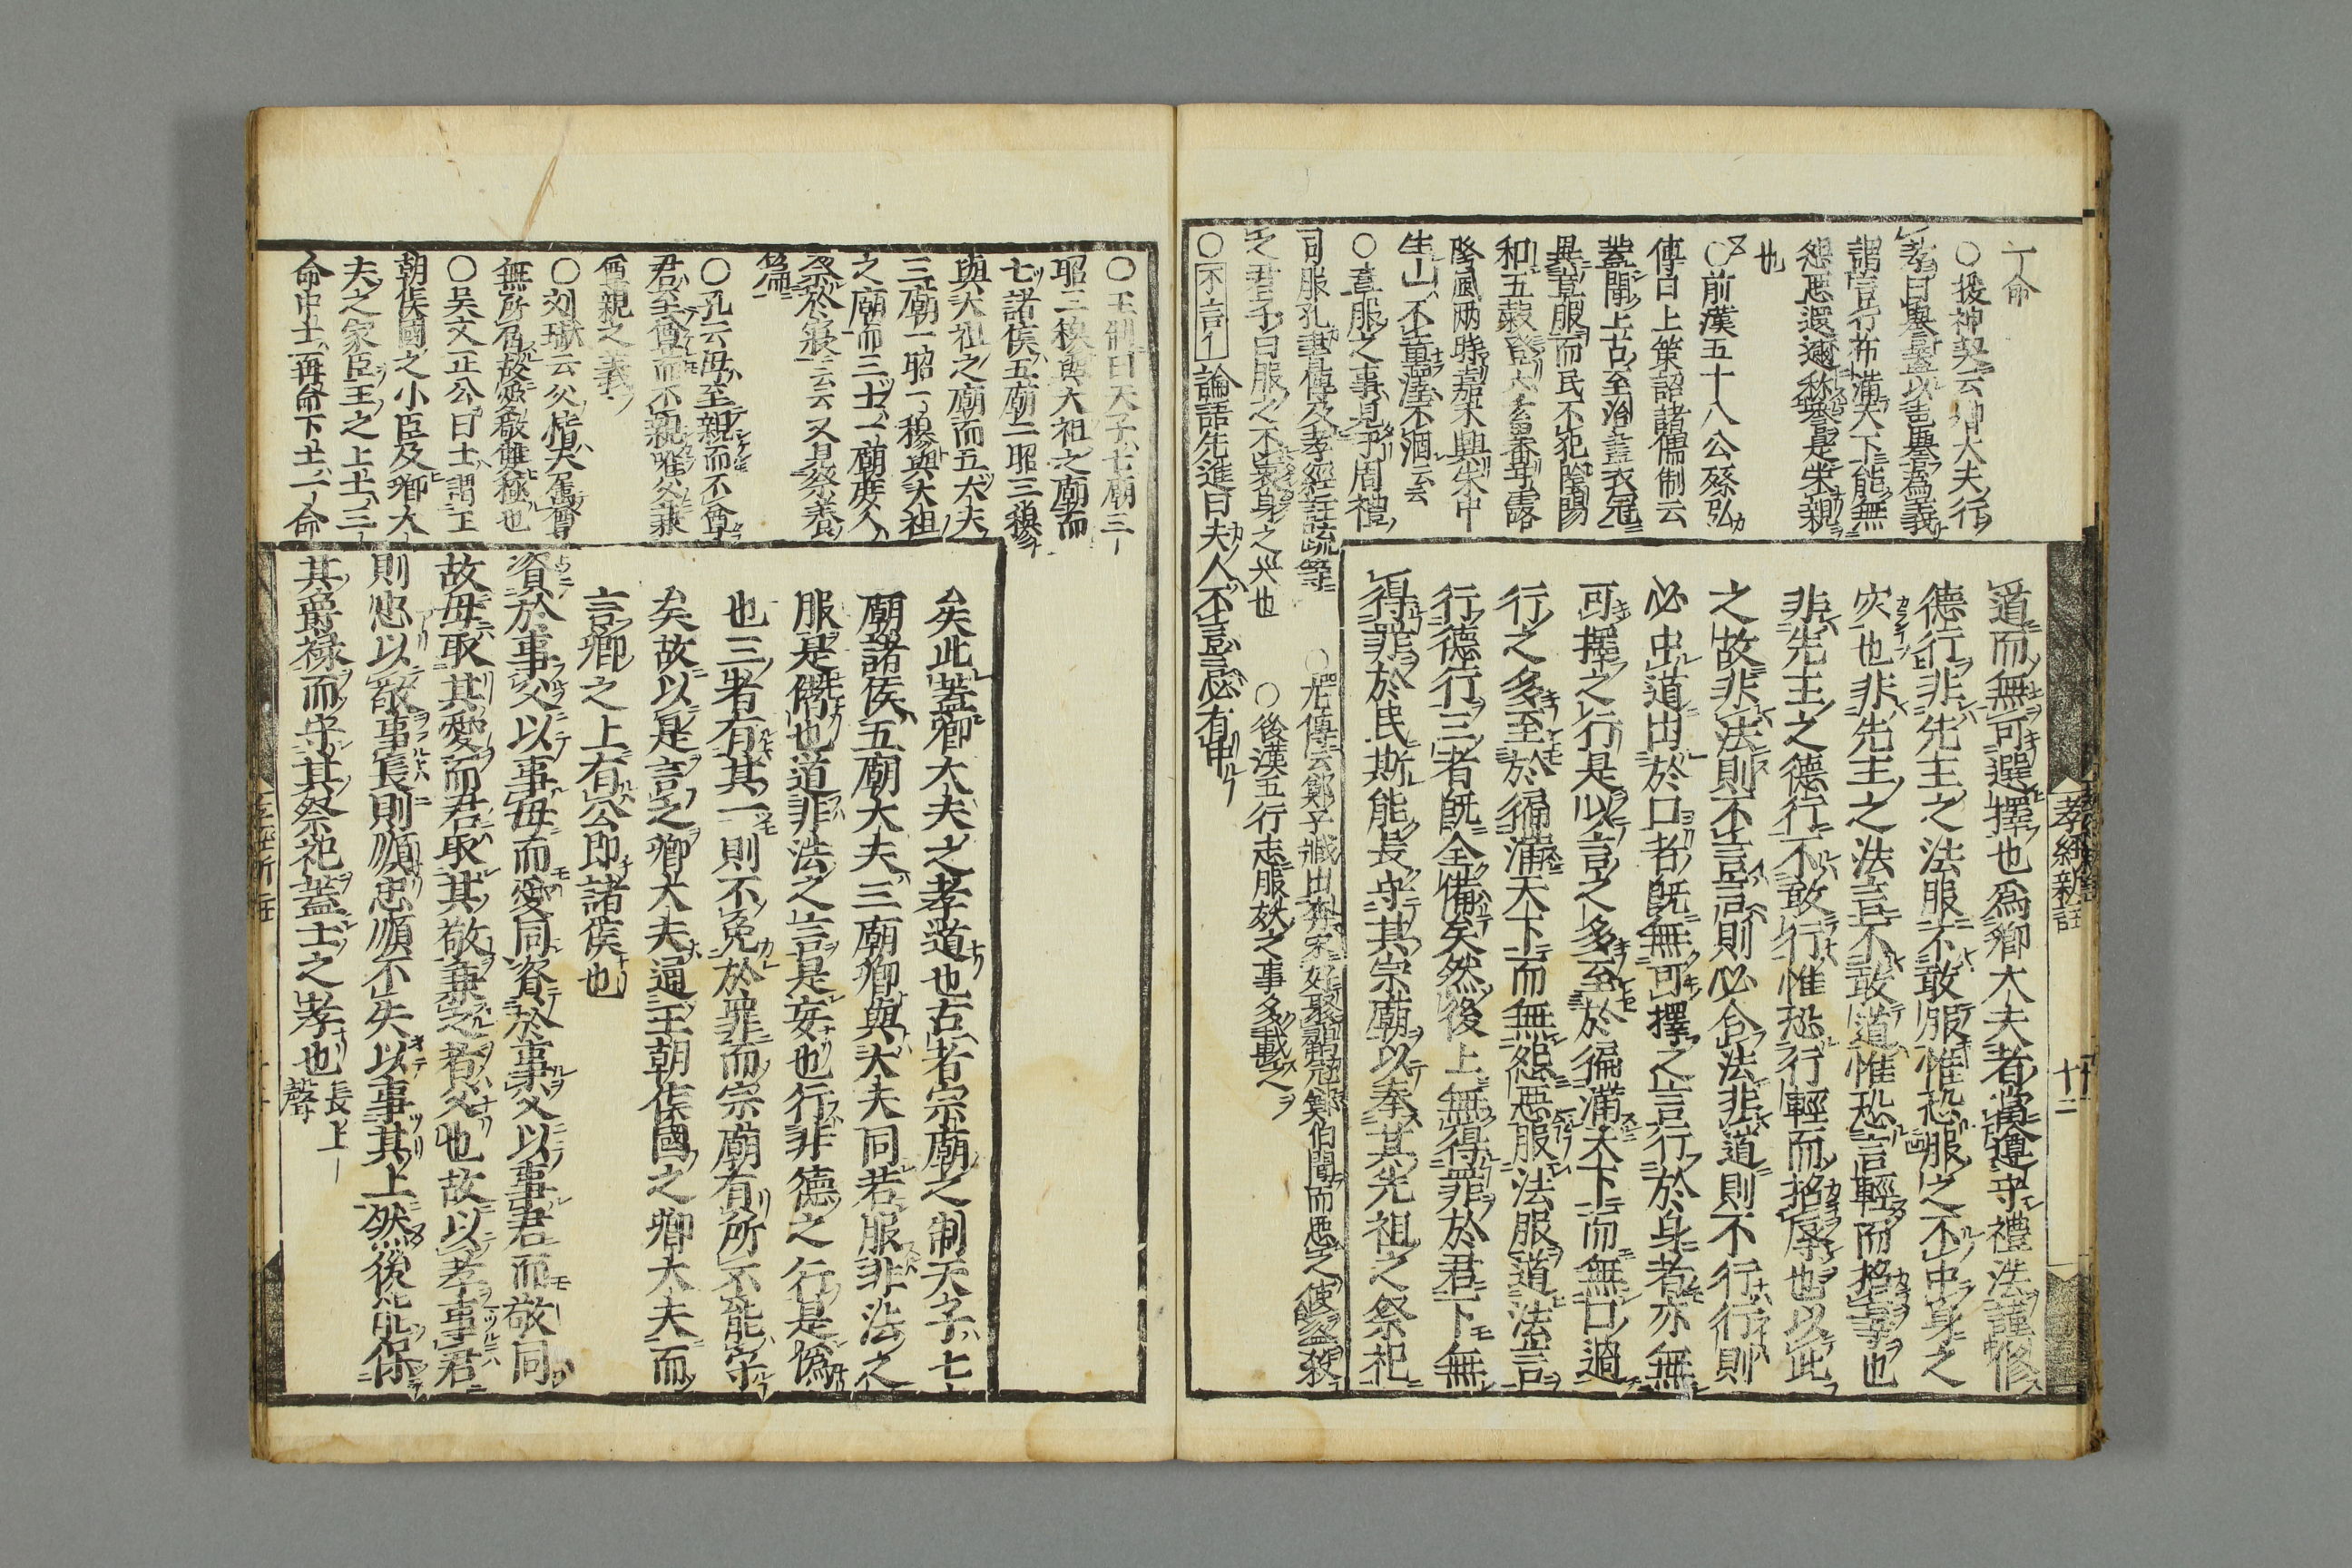 一命
○援神契云卿大夫行
孝曰譽蓋以聲譽爲義
謂言行布滿天下能無
怨惡遐邇称譽是榮親
也
○前漢五十八公孫弘
傳曰上策詔諸儒制云
蓋聞上古至治畫衣冠
異章服而民不犯陰陽
和五穀登六畜蕃甘露
降風雨時嘉禾興朱中
生山不童澤不涸云云
○章服之事見于周禮
司服孔書傳及孝經註疏等
○左傳云鄭子臧出奔宋好聚鷸冠鄭伯聞而惡之使盗殺
之君子曰服之不衷身之災也
○後漢五行志服妖之事多載之
○不言 論語先進曰夫人不言言必有中
道而無可選擇也爲卿大夫者當遵守禮法謹修
德行非先王之法服不敢服惟恐服之不中身之
災也非先王之法言不敢道惟恐言輕而招辜也
非先王之德行不敢行惟恐行輕而招辱也以此
之故非法則不言言則必合法非道則不行行則
必中道出於口者既無可擇之言行於身者亦無
可擇之行是以言之多至於徧滿天下而無口過
行之多至於徧滿天下而無怨惡服法服道法言
行德行三者既全備矣然後上無得罪於君下無
得罪於民斯能長守其宗廟以奉其先祖之祭祀
孝經新註
十二
○王制曰天子七廟三
昭三穆與大祖之廟而
七諸侯五廟二昭二穆
與大祖之廟而五大夫
三廟一昭一穆與大祖
之廟而三士一廟庶人
祭於寢云云又見祭義
篇
○孔云母至親而不尊
君至尊而不親唯父兼
尊親之義
○劉瓛云父情天屬尊
無所屈故愛敬雙極也
○吴文正公曰士謂王
朝侯國之小臣及卿大
夫之家臣王之上士三
命中士再命下士一命
矣此蓋卿大夫之孝道也古者宗廟之制天子七
廟諸侯五廟大夫三廟卿與大夫同若服非法之
服是僭也道非法之言是妄也行非德之行是僞
也三者有其一則不免於罪而宗廟有所不能守
矣故以是言之卿大夫通王朝侯國之卿大夫而
言卿之上有公即諸侯也
資於事父以事母而愛同資於事父以事君而敬同
故母取其愛而君取其敬兼之者父也故以孝事君
則忠以敬事長則順忠順不失以事其上然後能保
其爵禄而守其祭祀蓋士之孝也 長上聲